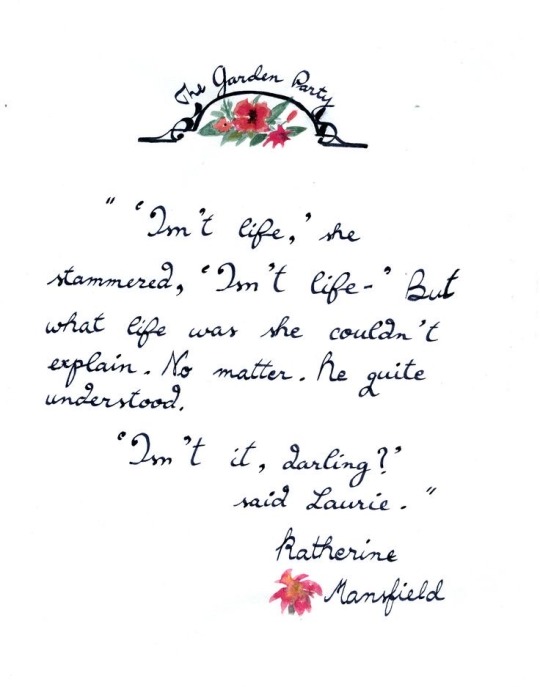 The Garden Party
" 'Isn't life,' she
stammered, 'Isn't life-' But
what life was she couldn't
explain. No matter. He quite
understood.
'Isn't it, darling?'
said Laurie. "
Katherine
Mansfield